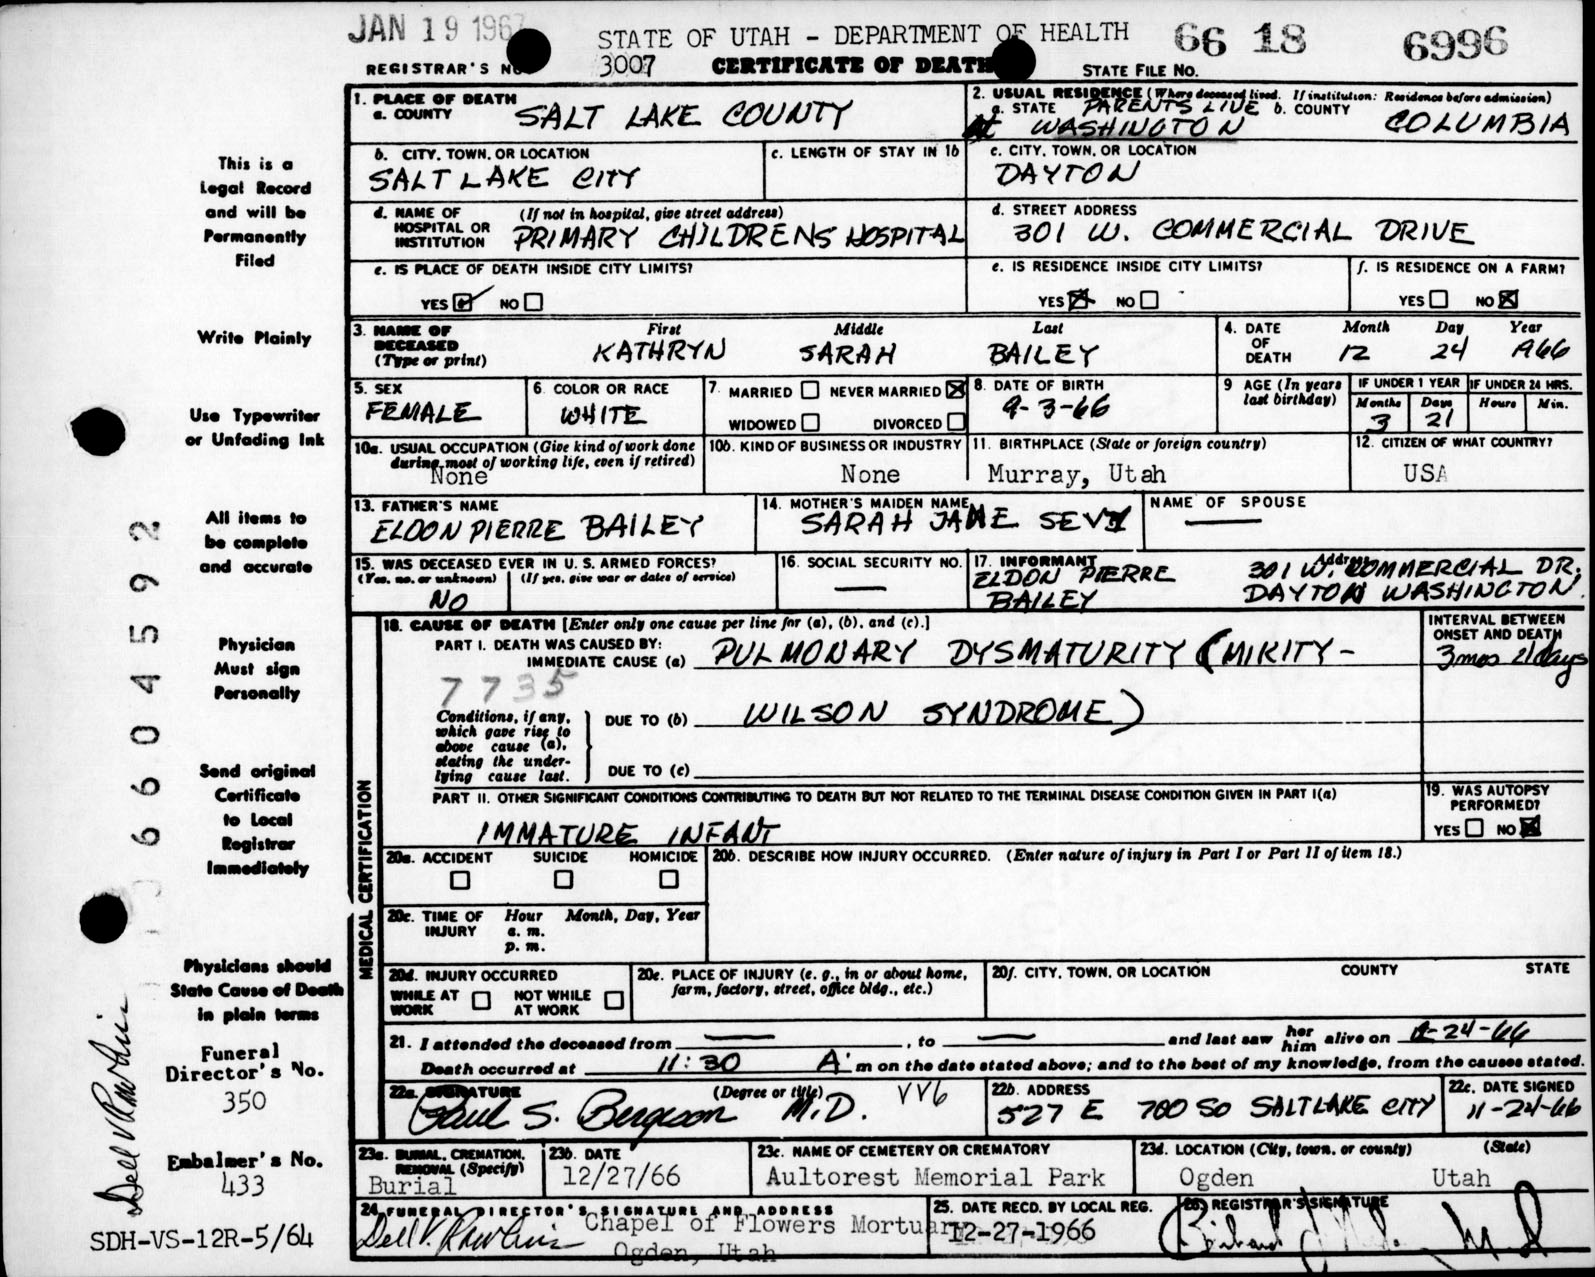 JAN 19 1967
STATE OF UTAH - DEPARTMENT OF HEALTH
66 18 6996
REGISTRAR'S NO. 3007 CERTIFICATE OF DEATH STATE FILE NO.
1. PLACE OF DEATH
a. COUNTY SALT LAKE COUNTY
2. USUAL RESIDENCE (Where deceased lived. If institution: Residence before admission)
a. STATE PARENTS LIVE At WASHINGTON b. COUNTY COLUMBIA
b. CITY, TOWN, OR LOCATION SALT LAKE CITY
c. LENGTH OF STAY IN 1b
c. CITY, TOWN, OR LOCATION DAYTON
d. NAME OF HOSPITAL OR INSTITUTION (If not in hospital, give street address) PRIMARY CHILDRENS HOSPITAL
d. STREET ADDRESS 301 W. COMMERCIAL DRIVE
e. IS PLACE OF DEATH INSIDE CITY LIMITS?
YES NO
e. IS RESIDENCE INSIDE CITY LIMITS?
YES NO
f. IS RESIDENCE ON A FARM?
YES NO
3. NAME OF DECEASED (Type or print)
First Middle Last
KATHRYN SARAH BAILEY
4. DATE OF DEATH Month Day Year
12 24 1966
5. SEX FEMALE
6. COLOR OR RACE WHITE
7. MARRIED NEVER MARRIED
WIDOWED DIVORCED
8. DATE OF BIRTH 9-3-66
9 AGE (In years last birthday)
IF UNDER 1 YEAR IF UNDER 24 HRS.
Months Days Hours Min.
3 21
10a. USUAL OCCUPATION (Give kind of work done during most of working life, even if retired)
None
10b. KIND OF BUSINESS OR INDUSTRY
None
11. BIRTHPLACE (State or foreign country)
Murray, Utah
12. CITIZEN OF WHAT COUNTRY?
USA
13. FATHER'S NAME
ELDON PIERRE BAILEY
14. MOTHER'S MAIDEN NAME
SARAH JANE SEVY
NAME OF SPOUSE
15. WAS DECEASED EVER IN U. S. ARMED FORCES?
(Yes, no, or unknown) (If yes, give war or dates of service)
NO
16. SOCIAL SECURITY NO.
17. INFORMANT Address
ELDON PIERRE BAILEY
301 W. COMMERCIAL DR.
DAYTON WASHINGTON
18. CAUSE OF DEATH [Enter only one cause per line for (a), (b), and (c).]
INTERVAL BETWEEN ONSET AND DEATH
PART I. DEATH WAS CAUSED BY:
IMMEDIATE CAUSE (a) PULMONARY DYSMATURITY (MIKITY-
3 mos 21 days
7735
Conditions, if any, which gave rise to above cause (a), stating the underlying cause last.
DUE TO (b) WILSON SYNDROME)
DUE TO (c)
PART II. OTHER SIGNIFICANT CONDITIONS CONTRIBUTING TO DEATH BUT NOT RELATED TO THE TERMINAL DISEASE CONDITION GIVEN IN PART I(a)
IMMATURE INFANT
19. WAS AUTOPSY PERFORMED?
YES NO
MEDICAL CERTIFICATION
20a. ACCIDENT SUICIDE HOMICIDE
20b. DESCRIBE HOW INJURY OCCURRED. (Enter nature of injury in Part I or Part II of item 18.)
20c. TIME OF INJURY Hour Month, Day, Year
a. m.
p. m.
20d. INJURY OCCURRED
WHILE AT WORK NOT WHILE AT WORK
20e. PLACE OF INJURY (e. g., in or about home, farm, factory, street, office bldg., etc.)
20f. CITY, TOWN, OR LOCATION COUNTY STATE
21. I attended the deceased from , to and last saw her him alive on 12-24-66
Death occurred at 11:30 A. m on the date stated above; and to the best of my knowledge, from the causes stated.
22a. SIGNATURE (Degree or title)
Paul S. Bergeson M.D.
22b. ADDRESS
527 E 700 SO SALT LAKE CITY
22c. DATE SIGNED
11-24-66
23a. BURIAL, CREMATION, REMOVAL (Specify)
Burial
23b. DATE
12/27/66
23c. NAME OF CEMETERY OR CREMATORY
Aultorest Memorial Park
23d. LOCATION (City, town, or county) (State)
Ogden Utah
24. FUNERAL DIRECTOR'S SIGNATURE AND ADDRESS
Dell V. Rawlins Chapel of Flowers Mortuary
Ogden, Utah
25. DATE RECD. BY LOCAL REG.
12-27-1966
26. REGISTRAR'S SIGNATURE
This is a
Legal Record
and will be
Permanently
Filed
Write Plainly
Use Typewriter
or Unfading Ink
All items to
be complete
and accurate
Physician
Must sign
Personally
Send original
Certificate
to Local
Registrar
Immediately
Physicians should
State Cause of Death
in plain terms
Funeral
Director's No.
350
Embalmer's No.
433
SDH-VS-12R-5/64
6604592
Dell V Rawlins